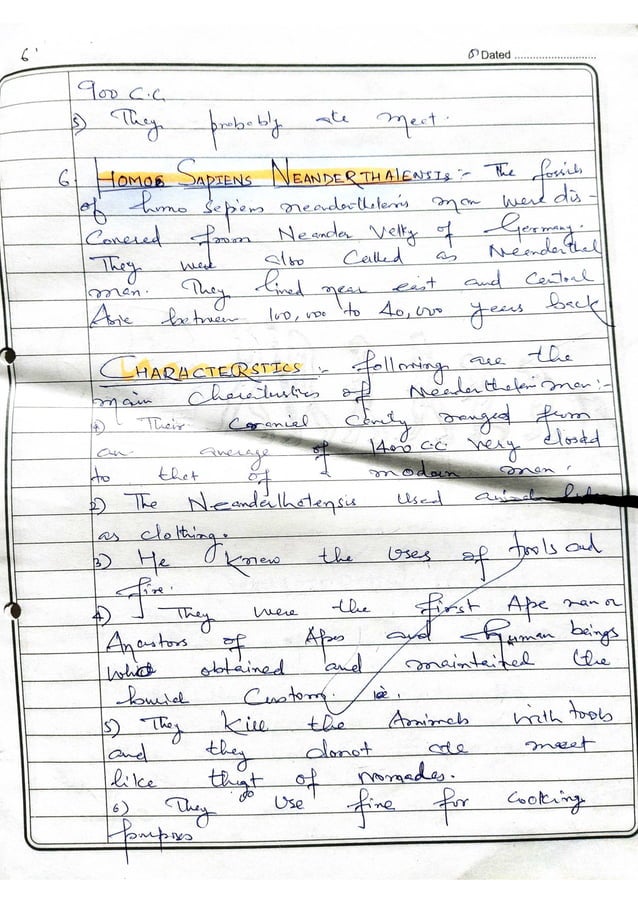 6'
Dated ..............................
900 C.C.
5) They probably ate meet.
6. HOMOS SAPIENS NEANDERTHALENSIS:- The fossils
of homo sepiens neanderthelenis man were dis-
Covered from Neander Velley of Germany.
They were also Called as Neenderthel
man. They lived near east and Central
Asie between 100,000 to 40,000 years back
CHARACTERSTICS:- following are the
main of Neenderthelen man:-
1) Their Cranial Cavity ranged from
an average of 1400 c.c very closed
to thet of a modern man.
2) The Neanderthelensis Used
as clothing.
3) He Knew the Uses of tools and
fire.
4) They were the first Ape man or
Ancstors of Apes and Human beings
what obtained and maintained the
buriel Custom.
5) They Kill the Animels with tools
and they donot ate meet
like thgt of Nomades.
6) They Use fire for Cooking